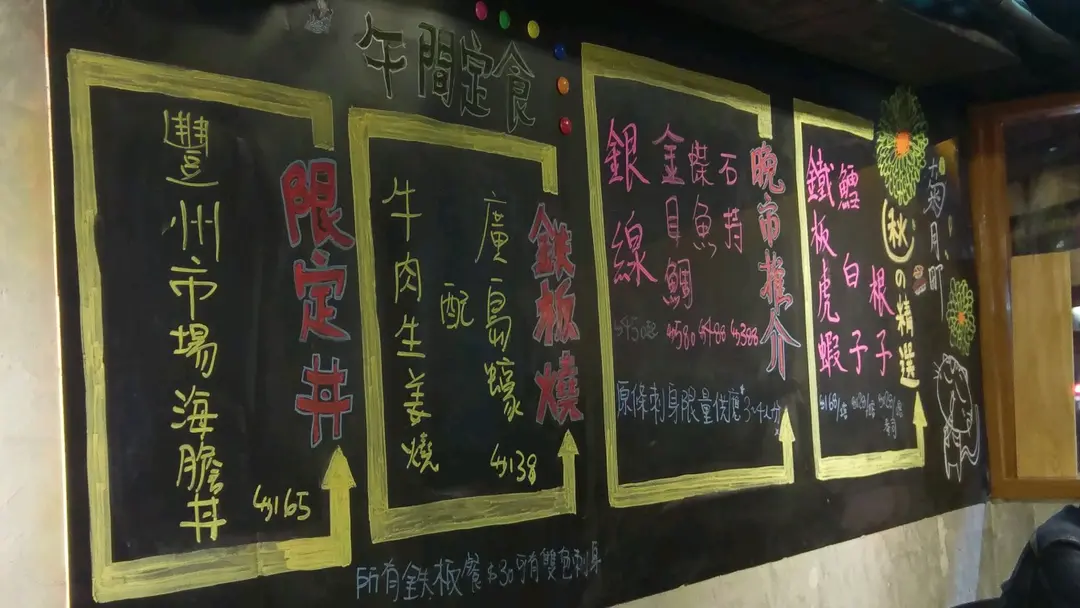 午間定食
限定丼
豐州市場海膽丼
$165
鉄板燒
廣島蠔
配
牛肉生姜燒
$138
所有鉄板餐$30可有雙色刺身
晚市推介
石持
柴魚
金目鯛
銀線
$450
$580
$480
$388
原條刺身限量供應
菊月町
秋の精選
根子
鱈白子
鐵板虎蝦
$168